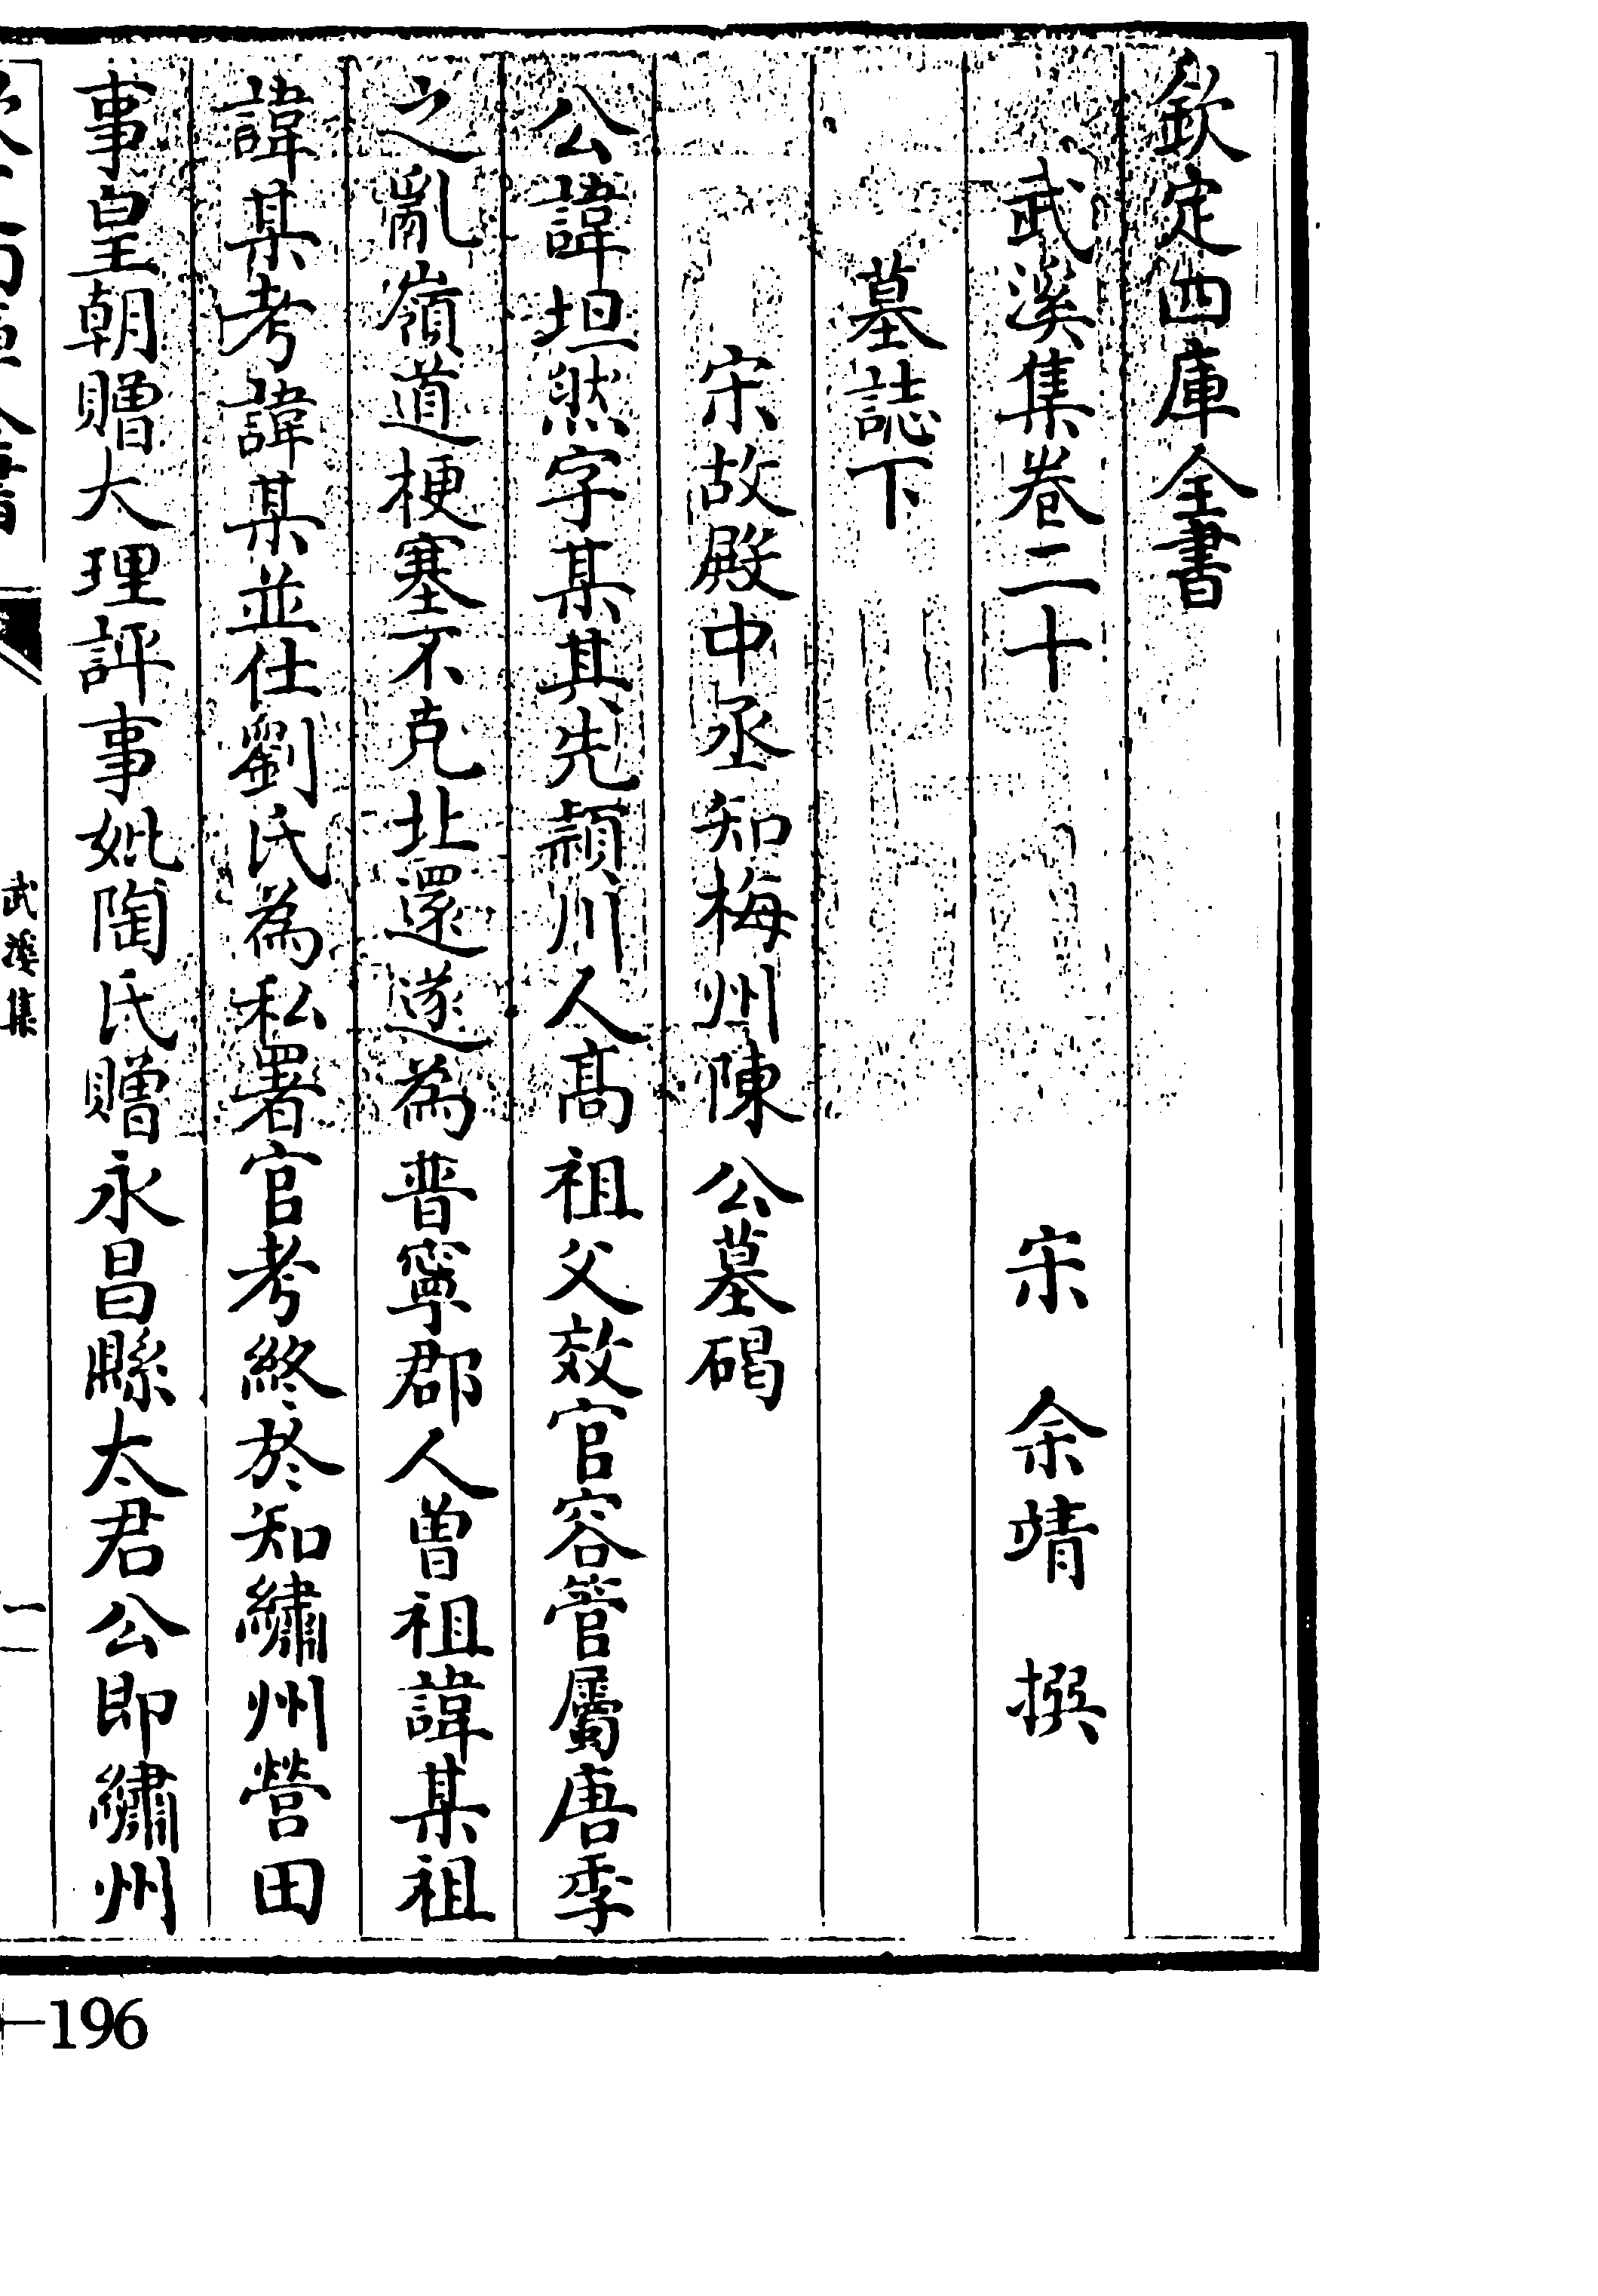 欽定四庫全書
武溪集卷二十 宋 余靖 撰
墓誌下
宋故殿中丞知梅州陳公墓碣
公諱坦然字某其先潁川人髙祖父效官容管屬唐季
之亂嶺道梗塞不克北還遂為普寧郡人曾祖諱某祖
諱某考諱某並仕劉氏為私署官考終於知繡州營田
事皇朝贈大理評事妣陶氏贈永昌縣太君公即繡州
武溪集
一
196